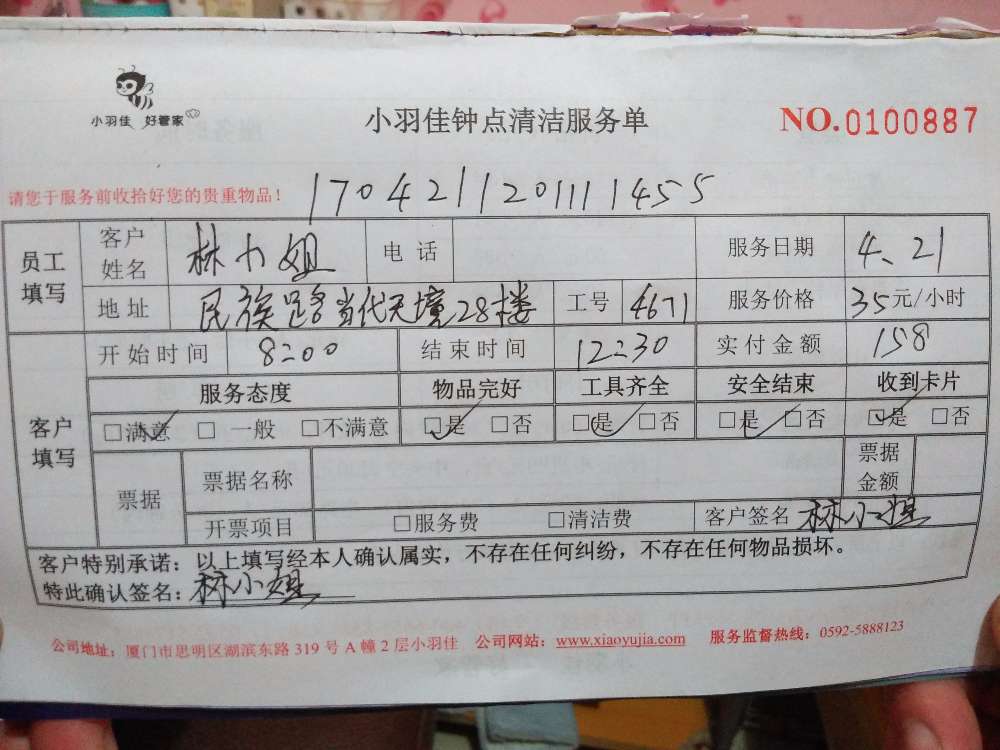 小羽佳 好管家
小羽佳钟点清洁服务单
NO.0100887
请您于服务前收拾好您的贵重物品！
1704211201111455
员工填写 客户姓名 林小姐 电话 服务日期 4、21
地址 民族路当代天境28楼 工号 4671 服务价格 35元/小时
客户填写 开始时间 8:00 结束时间 12:30 实付金额 158
服务态度 物品完好 工具齐全 安全结束 收到卡片
□满意 □一般 □不满意 □是 □否 □是 □否 □是 □否 □是 □否
票据 票据名称 票据金额
开票项目 □服务费 □清洁费 客户签名 林小姐
客户特别承诺：以上填写经本人确认属实，不存在任何纠纷，不存在任何物品损坏。
特此确认签名：林小姐
公司地址：厦门市思明区湖滨东路319号A幢2层小羽佳 公司网站：www.xiaoyujia.com 服务监督热线：0592-5888123